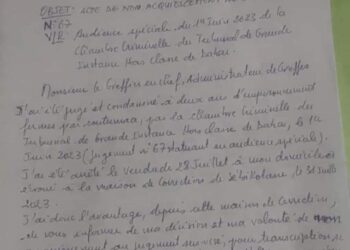 OBJET: ACTE DE NON ACQUIESCEMENT
N°67
V/R Audience spéciale du 1er Juin 2023 de la
Chambre Criminelle du Tribunal de Grande
Instance Hors Classe de Dakar.
Monsieur le Greffier en chef, Administrateur de Greffe
J'ai été jugé et condamné à deux ans d'emprisonnement
fermes par contumace, par la Chambre Criminelle du
Tribunal de Grande Instance Hors Classe de Dakar, le 1er
Juin 2023 (Jugement n°67 statuant en audience spéciale).
J'ai été arrêté le vendredi 28 Juillet à mon domicile
écroué à la maison de Correction de Sébikotane, le 31 Juillet
2023.
J'ai donc l'avantage, depuis cette maison de Correction,
de vous informer de ma décision et ma volonté de
au jugement pour transcription